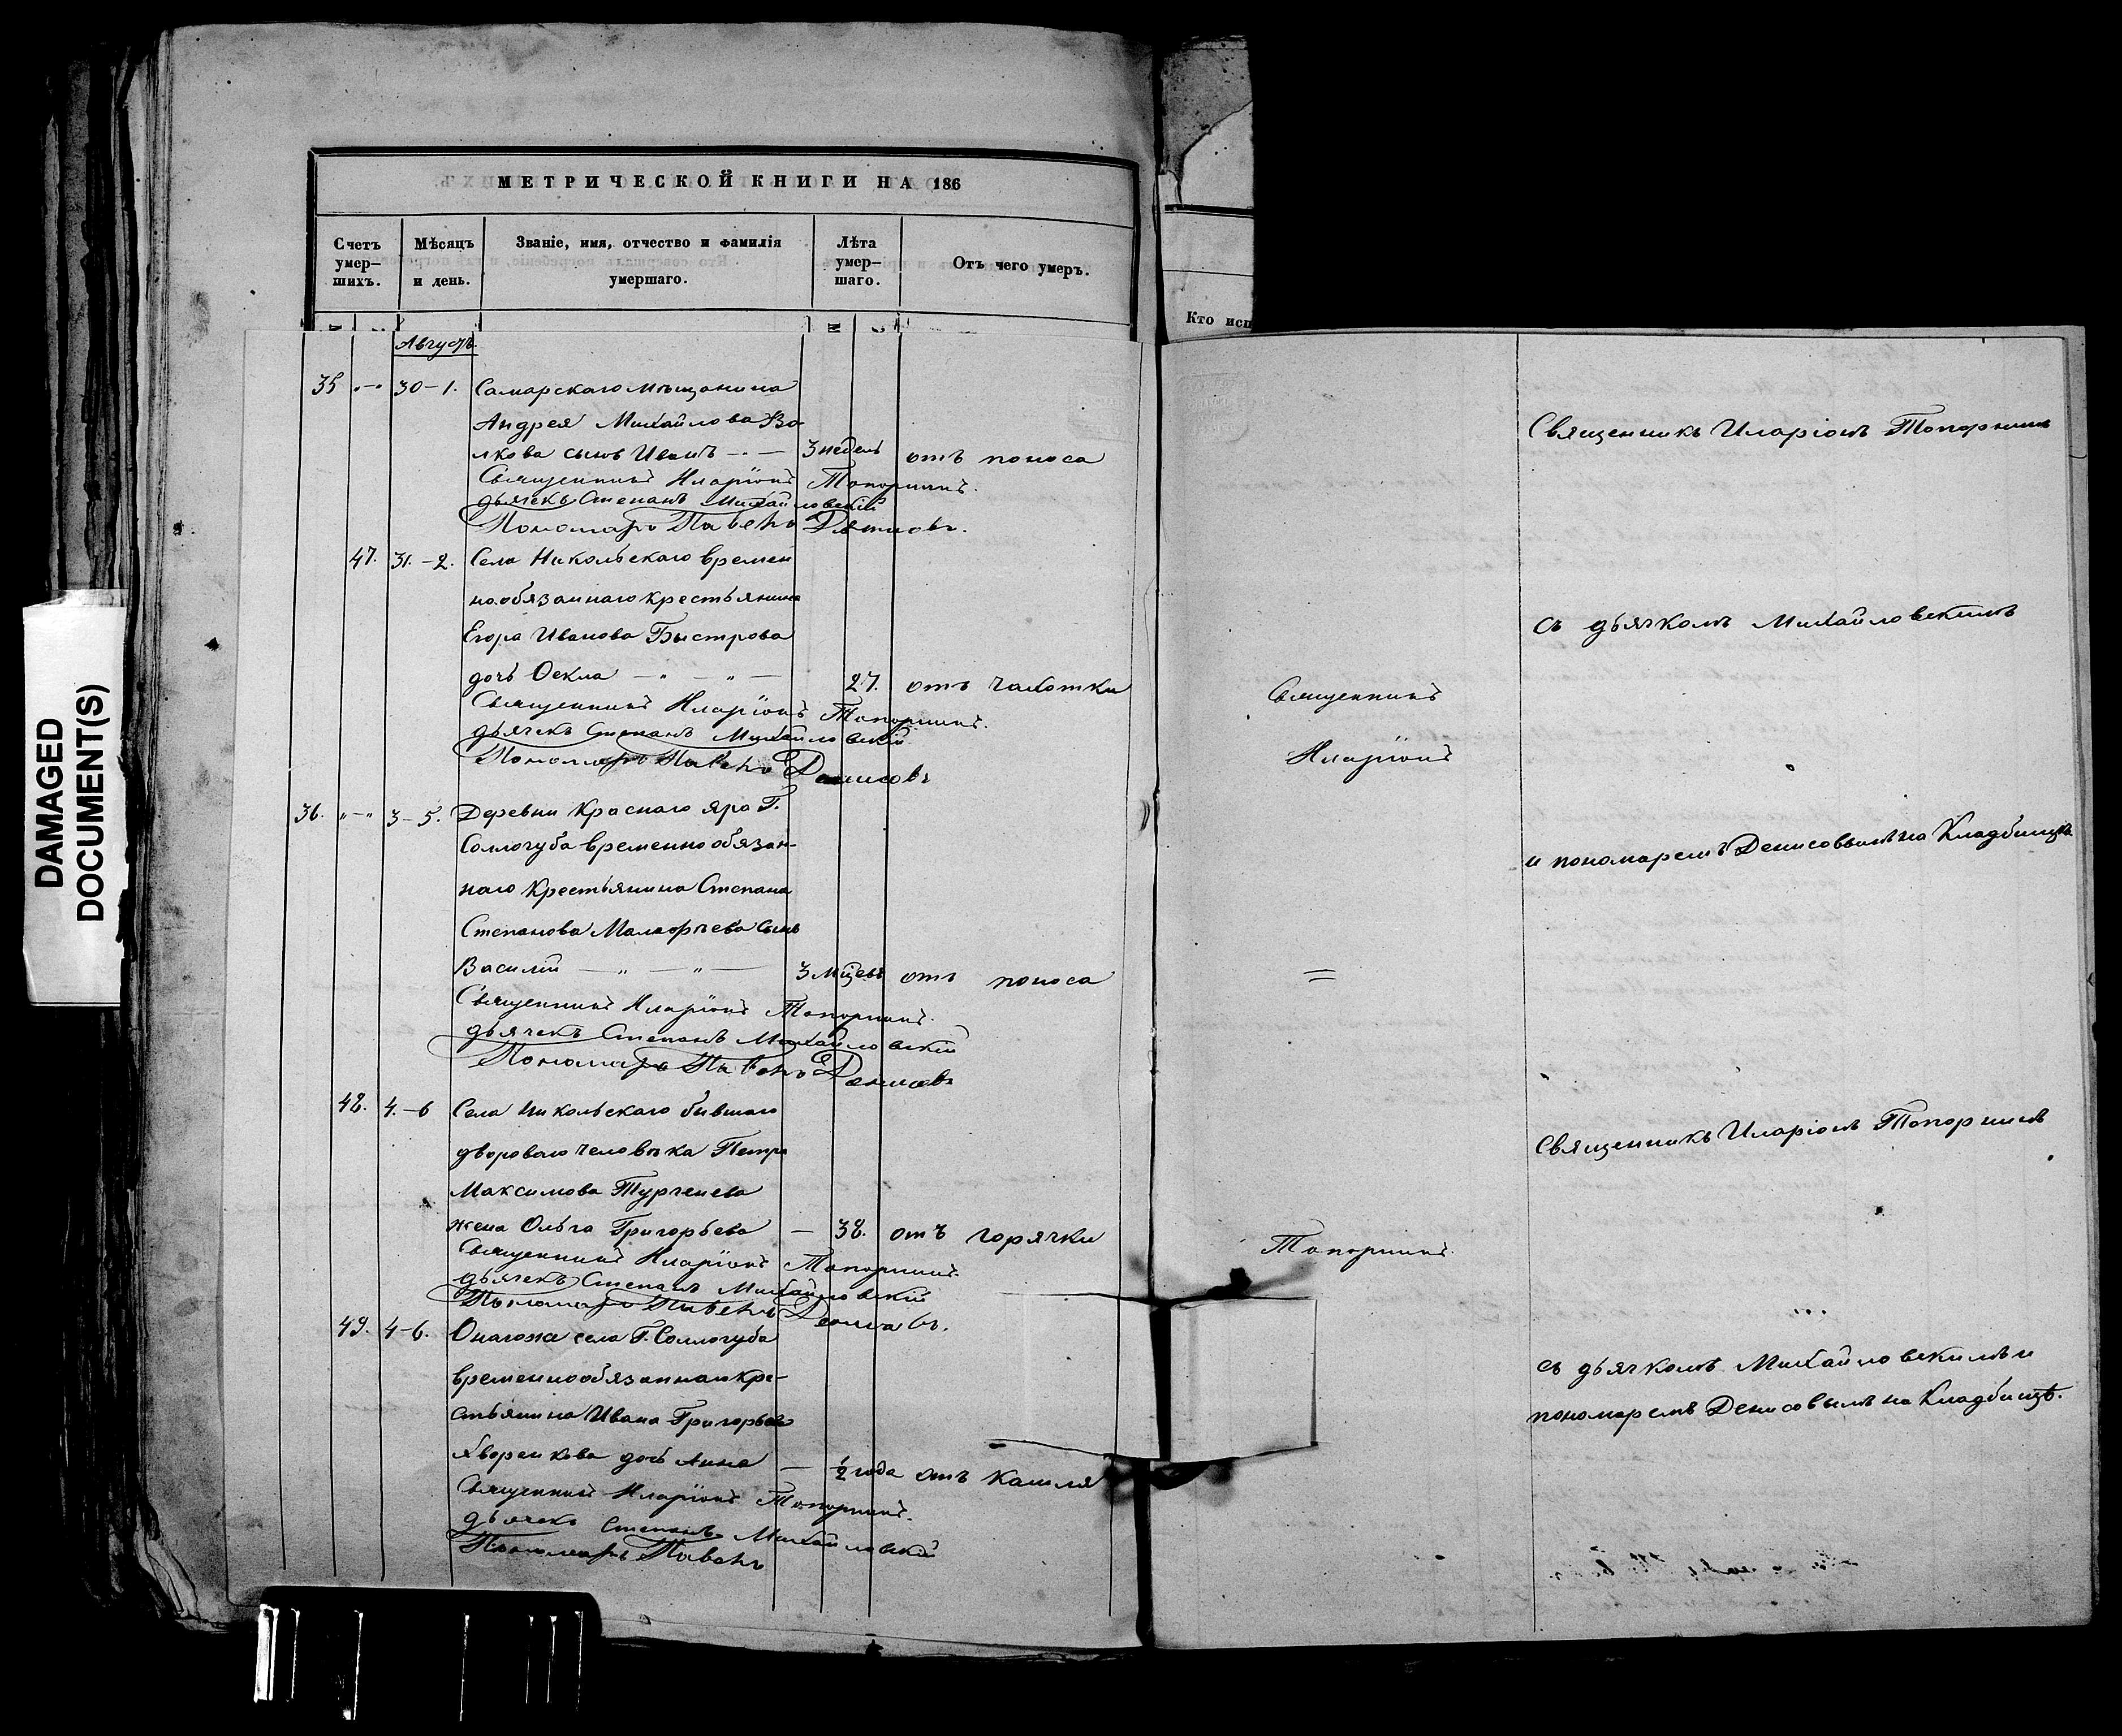 МЕТРИЧЕСКОЙ КНИГИ НА 186
Счетъ умер– шихъ.
Мѣсяцъ и день.
Званіе, имя, отчество и фамилія умершаго.
Лѣта умер– шаго.
Отъ чего умеръ.
Кто исп
DAMAGED
DOCUMENT(S)
Августъ.
35 "–" 30–1. Самарскаго мѣщанина
Андрея Михайлова Во
лкова сынъ Иванъ – . – 3 недель отъ поноса
Священникъ Иларіонъ Топорнинъ.
дьячекъ Степанъ Михайловскій
Пономарь Павелъ Денисовъ.
47. 31.–2. Села Никольскаго времен
но.обязаннаго крестьянина
Егора Иванова Быстрова
дочь Ѳекла – " – " – 27. отъ чахотки
Священникъ Иларіонъ Топорнинъ.
дьячекъ Степанъ Михайловскій
Пономарь Павелъ Денисовъ
36. "–" 3–5. Деревни Краснаго яра Г.
Соллогуба временно обязан-
наго крестьянина Степана
Степанова сынъ
Василій – " – " – 3 мцевъ отъ поноса
Священникъ Иларіонъ Топорнинъ.
дьячекъ Степанъ Михайловскій
Пономарь Павелъ Денисовъ
48. 4.–6 Села Никольскаго бывшаго
двороваго человѣка Петра
Максимова Тургенева
жена Ольга Григорьева – 38. отъ горячки
Священникъ Иларіонъ Топорнинъ.
дьячекъ Степанъ Михайловскій
Пономарь Павелъ Денисовъ.
49. 4–6. Онагожа села Г. Соллогуба
временнообязаннаго кре-
стьянина Ивана Григорьева
дочь Анна – ½ года отъ кашля
Священникъ Иларіонъ Топорнинъ.
дьячекъ Степанъ Михайловскій
Пономарь Павелъ
Священникъ
Иларіонъ
=
Топорнинъ.
Священникъ Иларіонъ Топорнинъ
съ дьячкомъ Михайловскимъ
и пономаремъ Денисовымъ на Кладбищѣ
Священникъ Иларіонъ Топорнинъ
съ дьячкомъ Михайловскимъ и
пономаремъ Денисовымъ на Кладбищѣ.